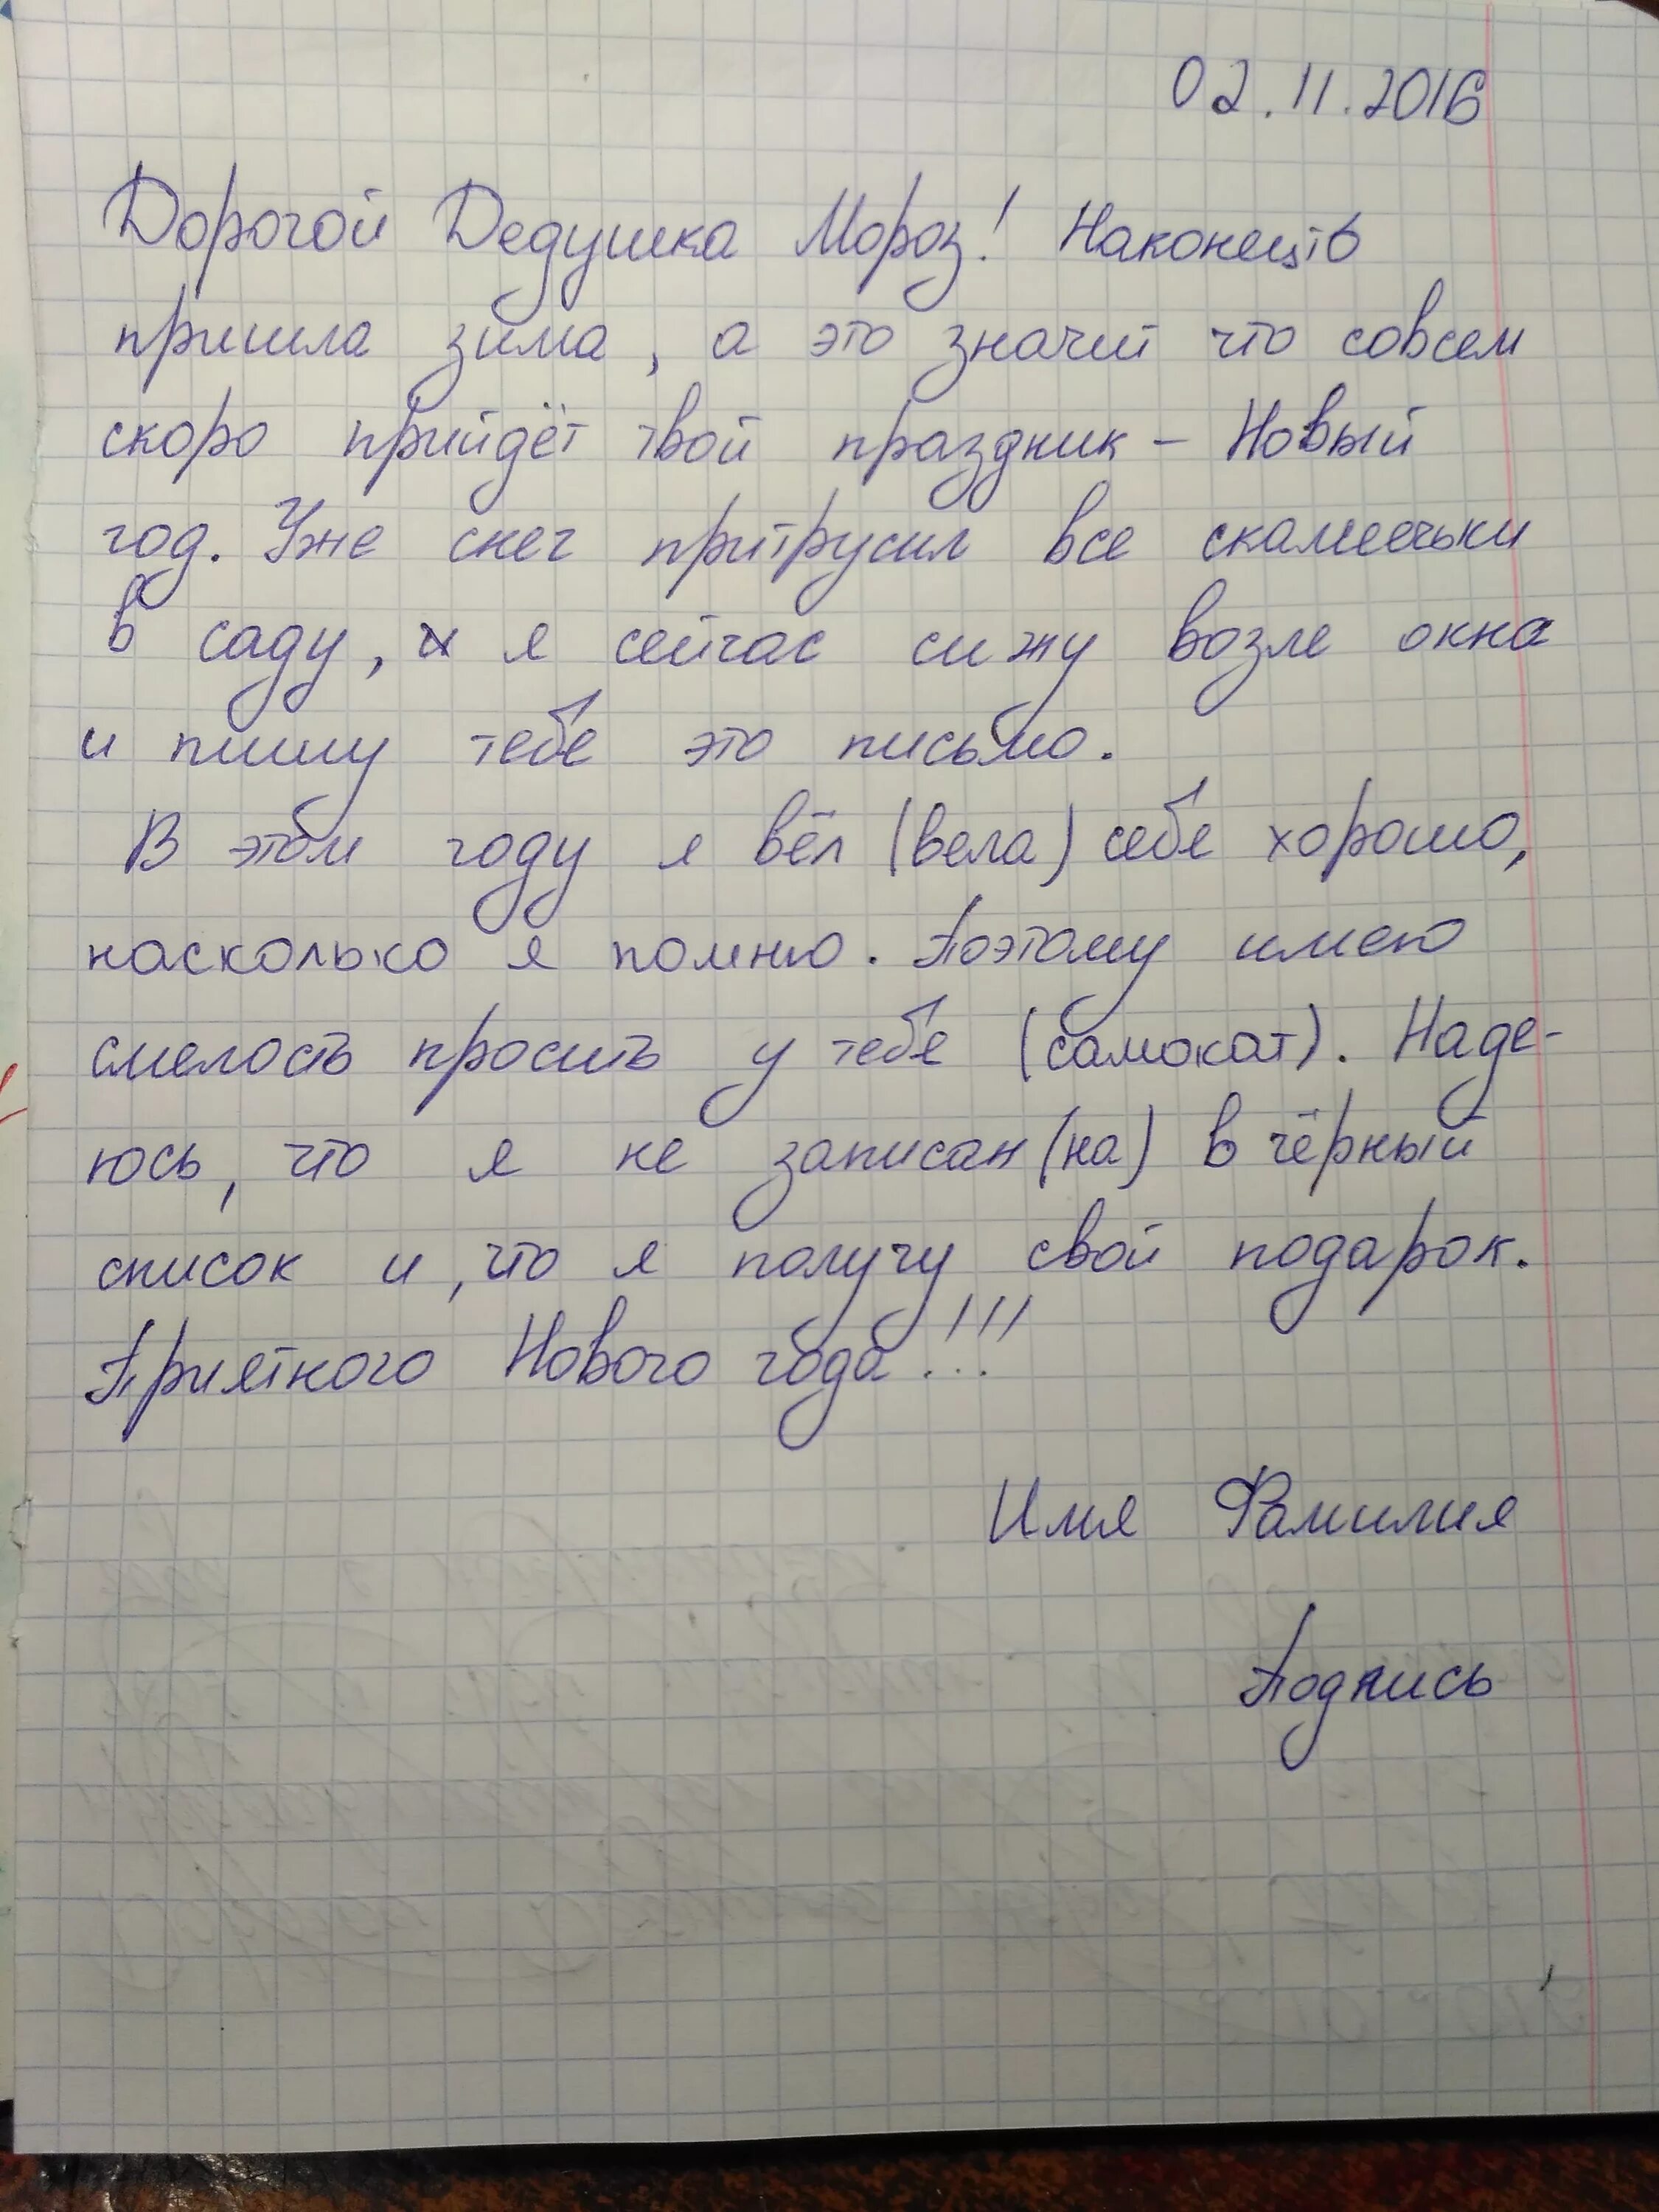 02.11.2016
Дорогой Дедушка Мороз! Наконецто
пришла зима, а это значит что совсем
скоро прийдёт твой праздник - Новый
год. Уже снег притрусил все скамеечьки
в саду, и я сейчас сижу возле окна
и пишу тебе это письмо.
В этом году я вёл (вела) себе хорошо,
насколько я помню. Поэтому имею
смелость просить у тебе (самокат). Наде-
юсь, что я не записан(на) в чёрный
список и, что я получу свой подарок.
Приятного Нового года!!!
Имя Фамилия
Подпись